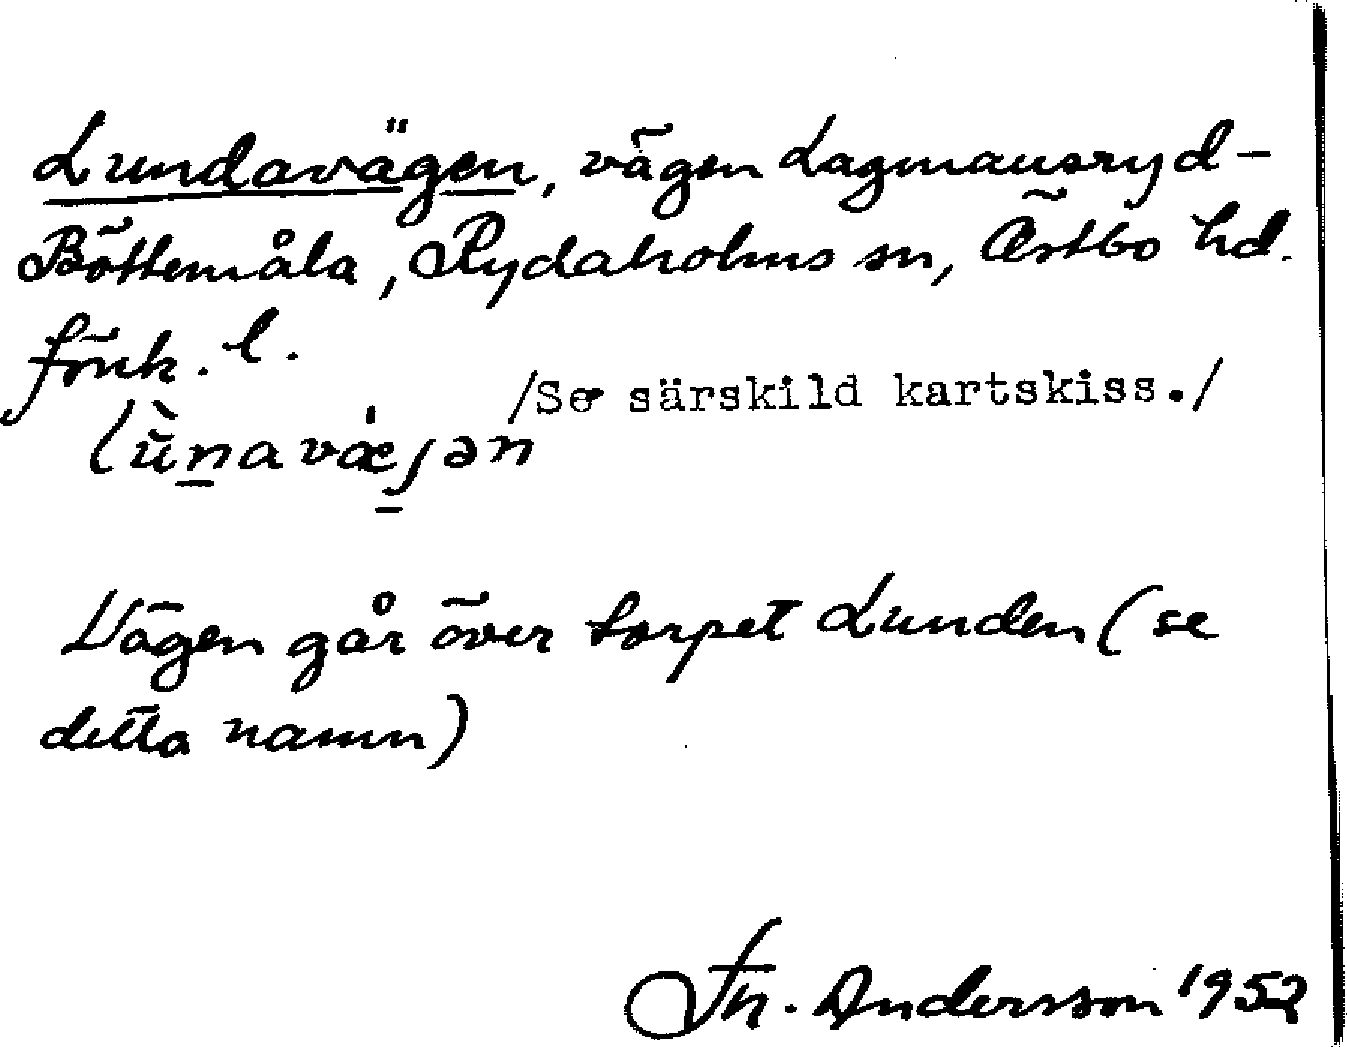 Lundavägen, vägen Lagmansryd-
Böttemåla, Rydaholms sn, Östbo hd.
Jönk. l.
/Se särskild kartskiss./
lùnavæ̍jən
Vägen går över torpet Lunden (se
detta namn)
Th. Andersson 1952